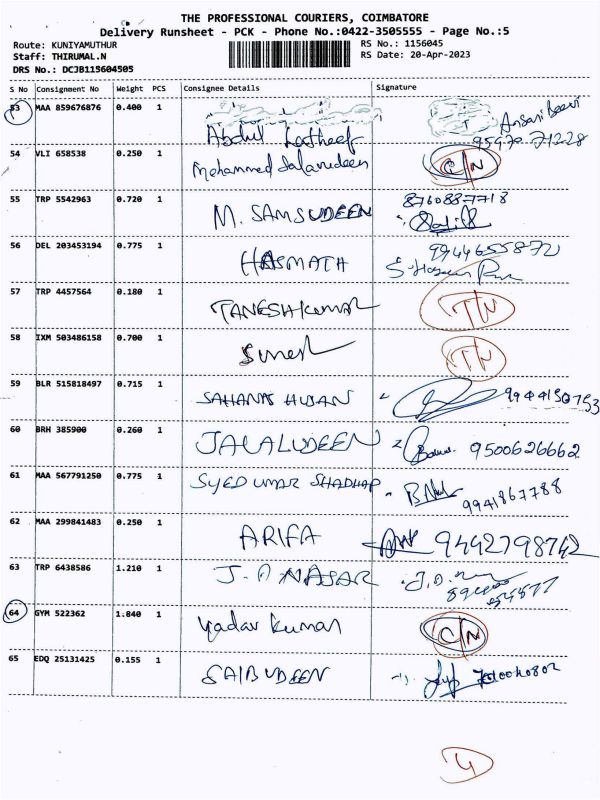 THE PROFESSIONAL COURIERS, COIMBATORE
Delivery Runsheet - PCK - Phone No.:0422-3505555 - Page No.:5
Route: KUNIYAMUTHUR RS No.: 1156045
Staff: THIRUMAL.N RS Date: 20-Apr-2023
DRS No.: DCJB115604505
S No Consignment No Weight PCS Consignee Details Signature
53 MAA 859676876 0.400 1 Abdul Ansari Beevi
54 VLI 658538 0.250 1 Mohammed C/N
55 TRP 5542963 0.720 1 M. SAMSUDEEN 8760887718
56 DEL 203453194 0.775 1 HASMATH
57 TRP 4457564 0.180 1 TANESHKUMAR I/N
58 IXM 503486158 0.700 1 I/N
59 BLR 515818497 0.715 1 SAHANA
60 BRH 385900 0.260 1 JALALUDEEN 9500626662
61 MAA 567791250 0.775 1 SYED UMAR 9941867788
62 MAA 299841483 0.250 1 ARIFA 9442798742
63 TRP 6438586 1.210 1 J. A NASAR
64 GYM 522362 1.840 1 Yadav kumar C/N
65 EDQ 25131425 0.155 1 SAIBUDEEN
4